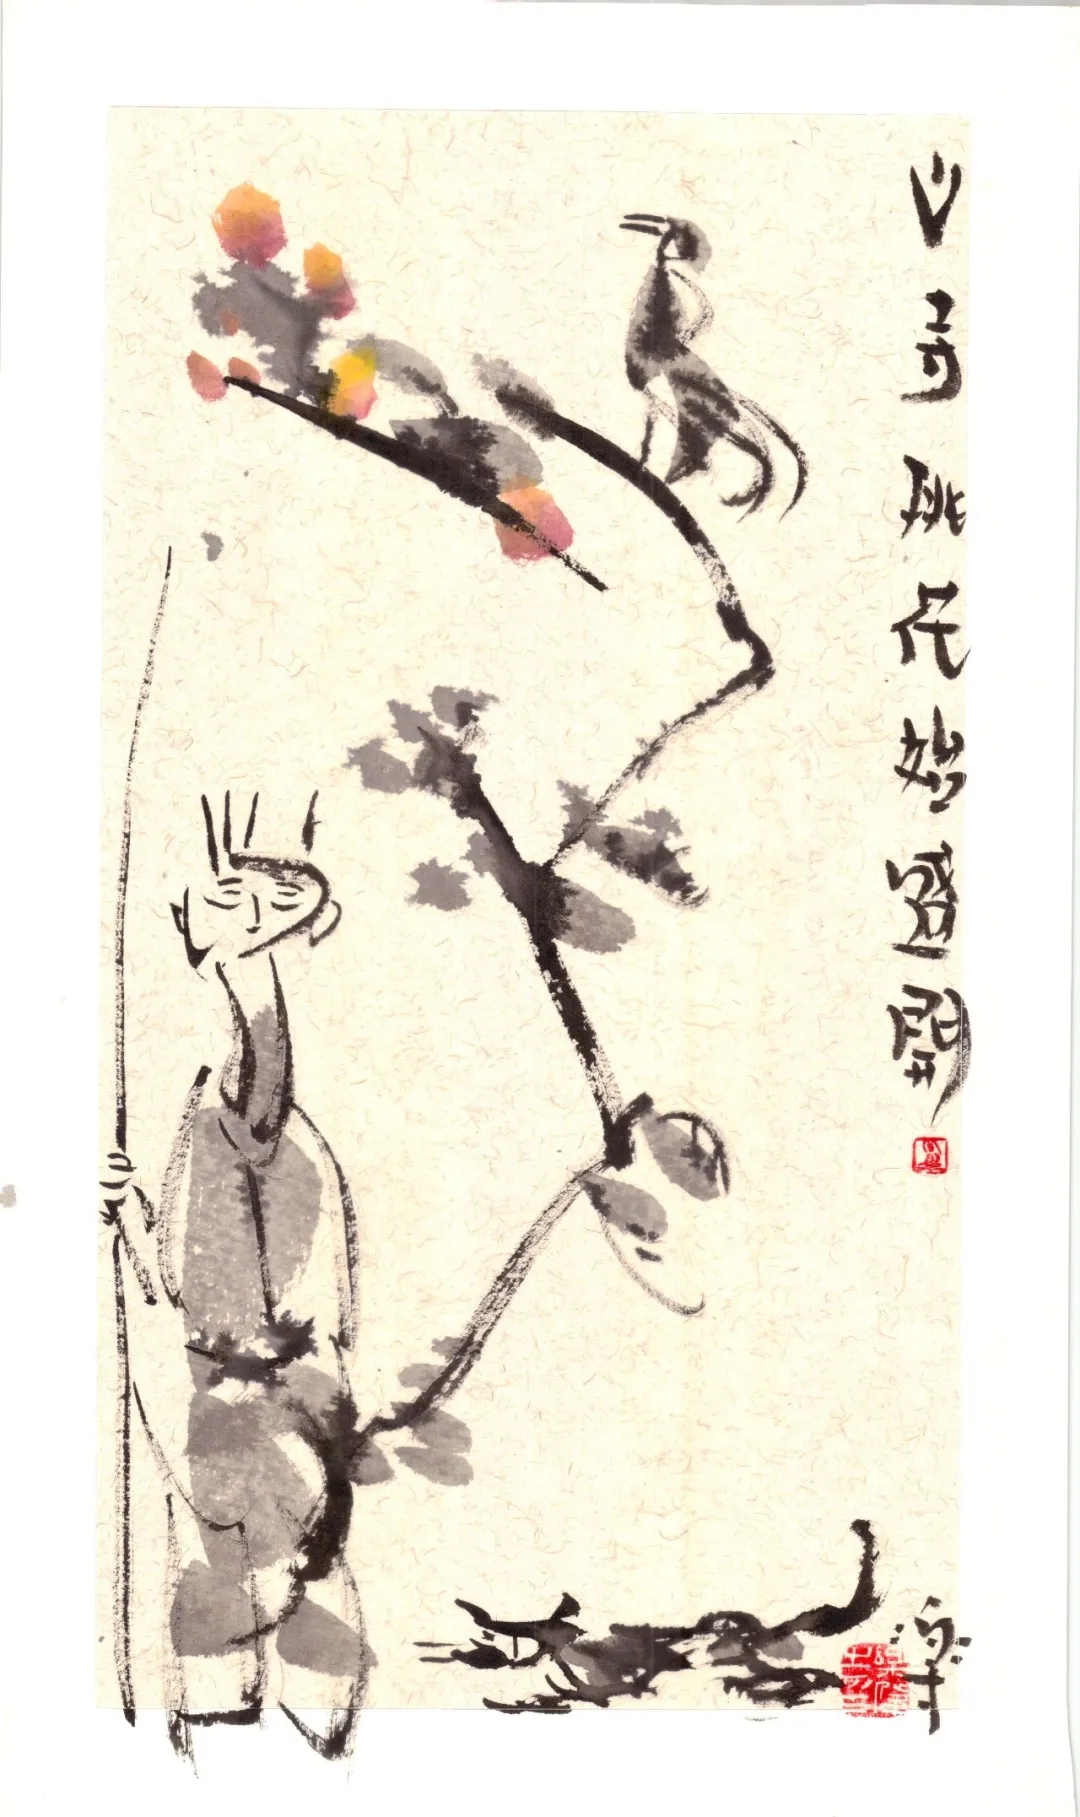 山寺桃花始盛開